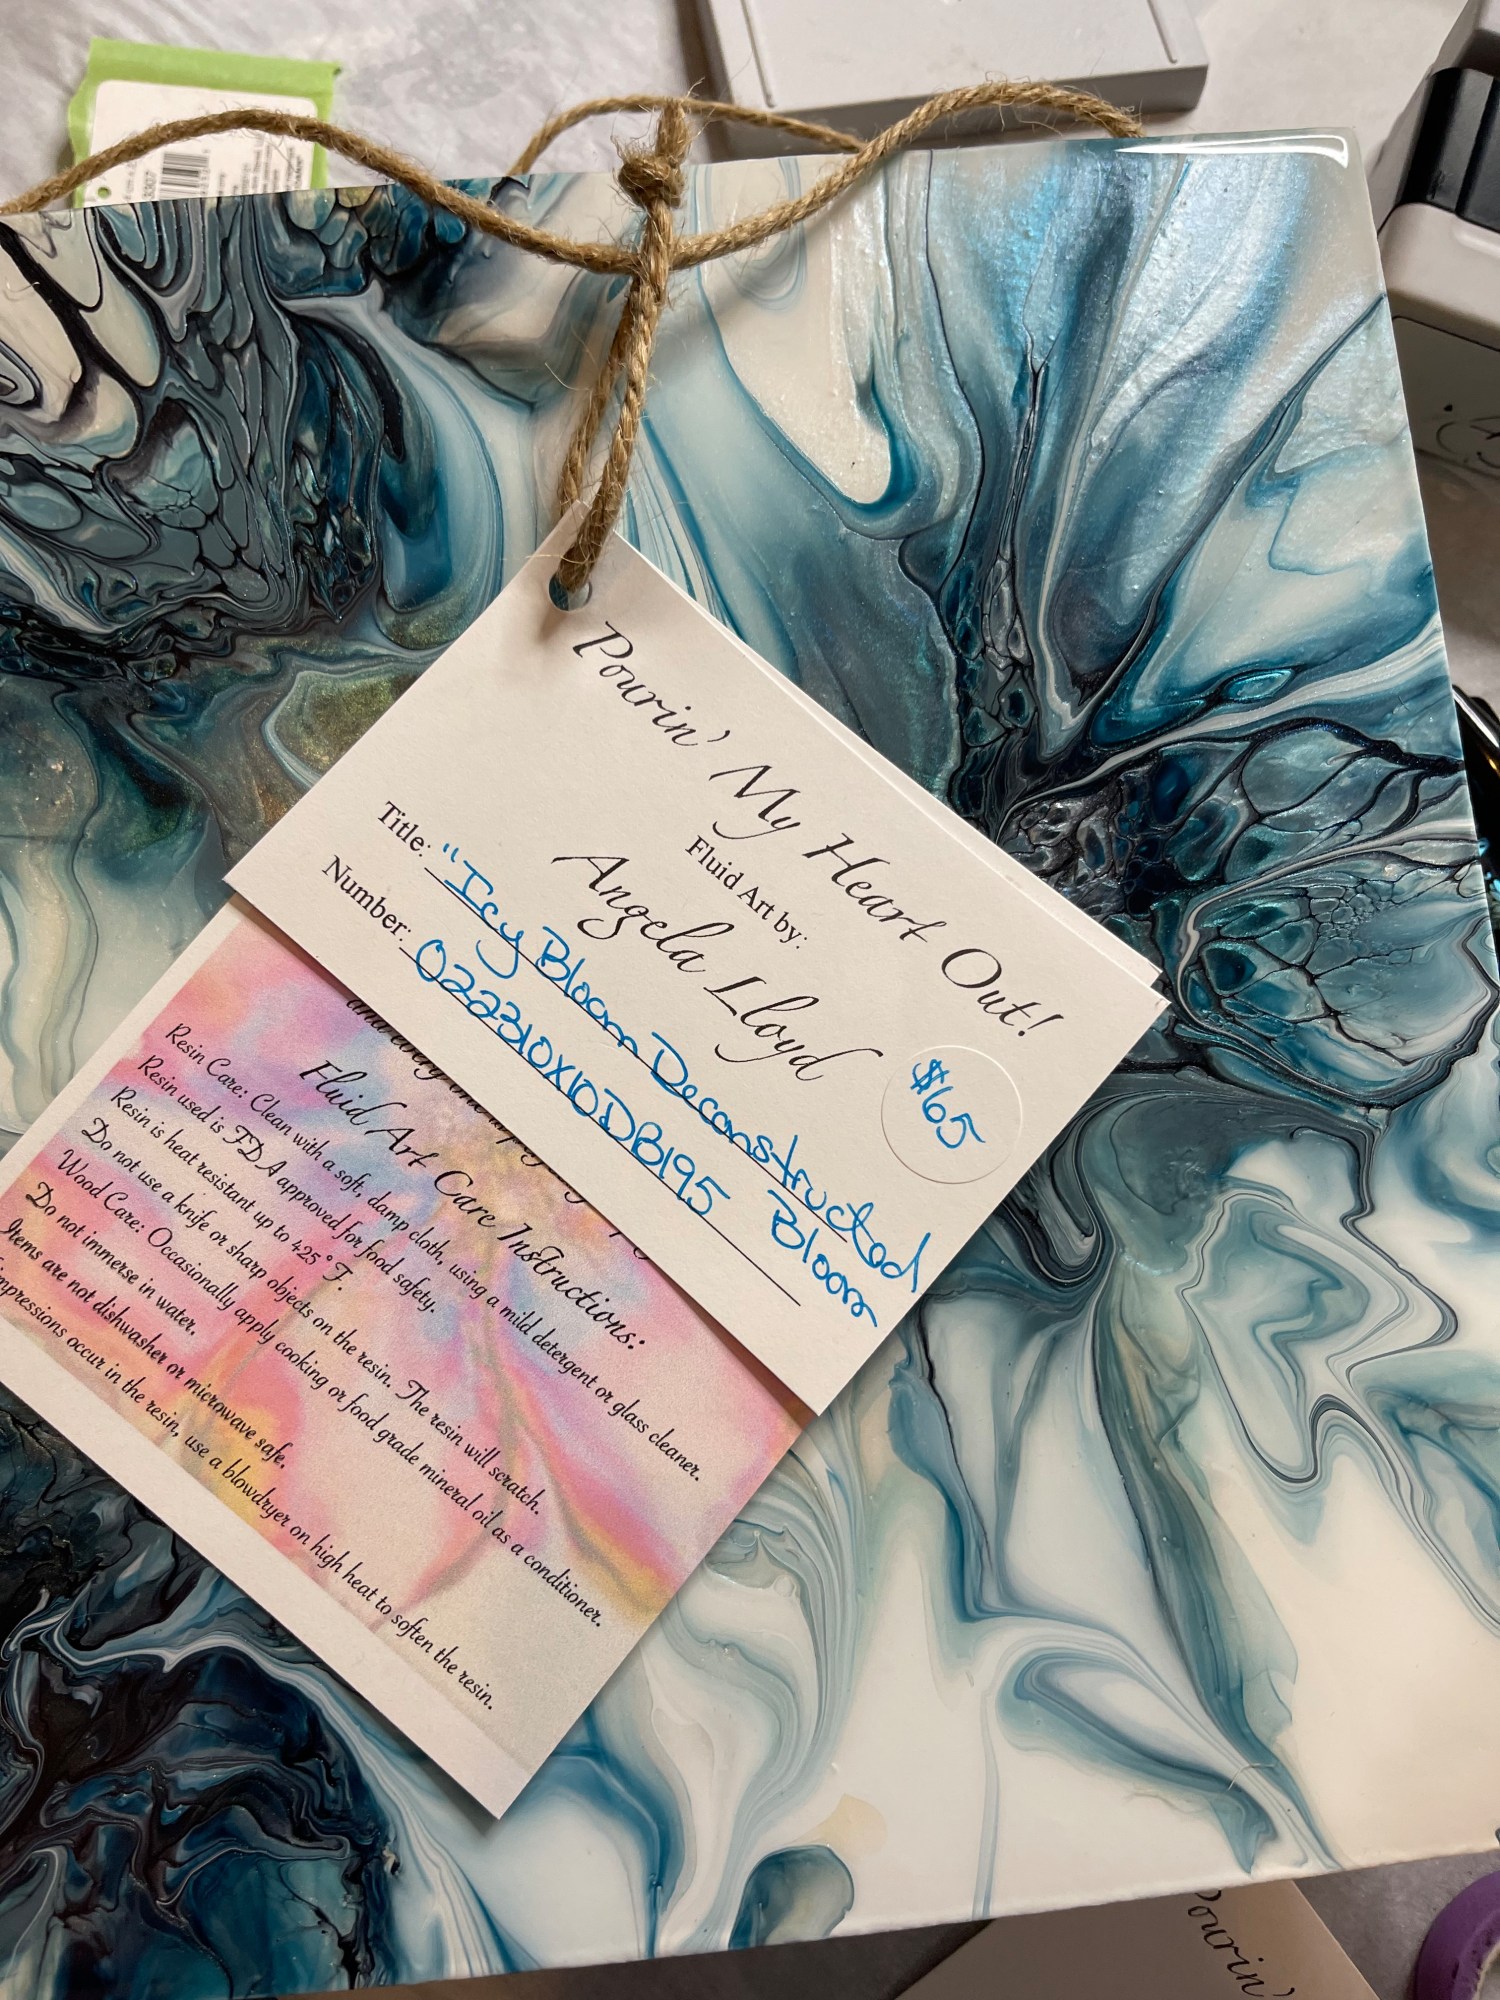 Pourin' My Heart Out!
Fluid Art by:
Angela Lloyd
Title: "Icy Bloom Deconstructed
Bloom
Number: 022310X10DB195
$65
Fluid Art Care Instructions:
Resin Care: Clean with a soft, damp cloth, using a mild detergent or glass cleaner.
Resin used is FDA approved for food safety.
Resin is heat resistant up to 425°F.
Do not use a knife or sharp objects on the resin. The resin will scratch.
Wood Care: Occasionally apply cooking or food grade mineral oil as a conditioner.
Do not immerse in water.
Items are not dishwasher or microwave safe.
impressions occur in the resin, use a blowdryer on high heat to soften the resin.
Pourin'